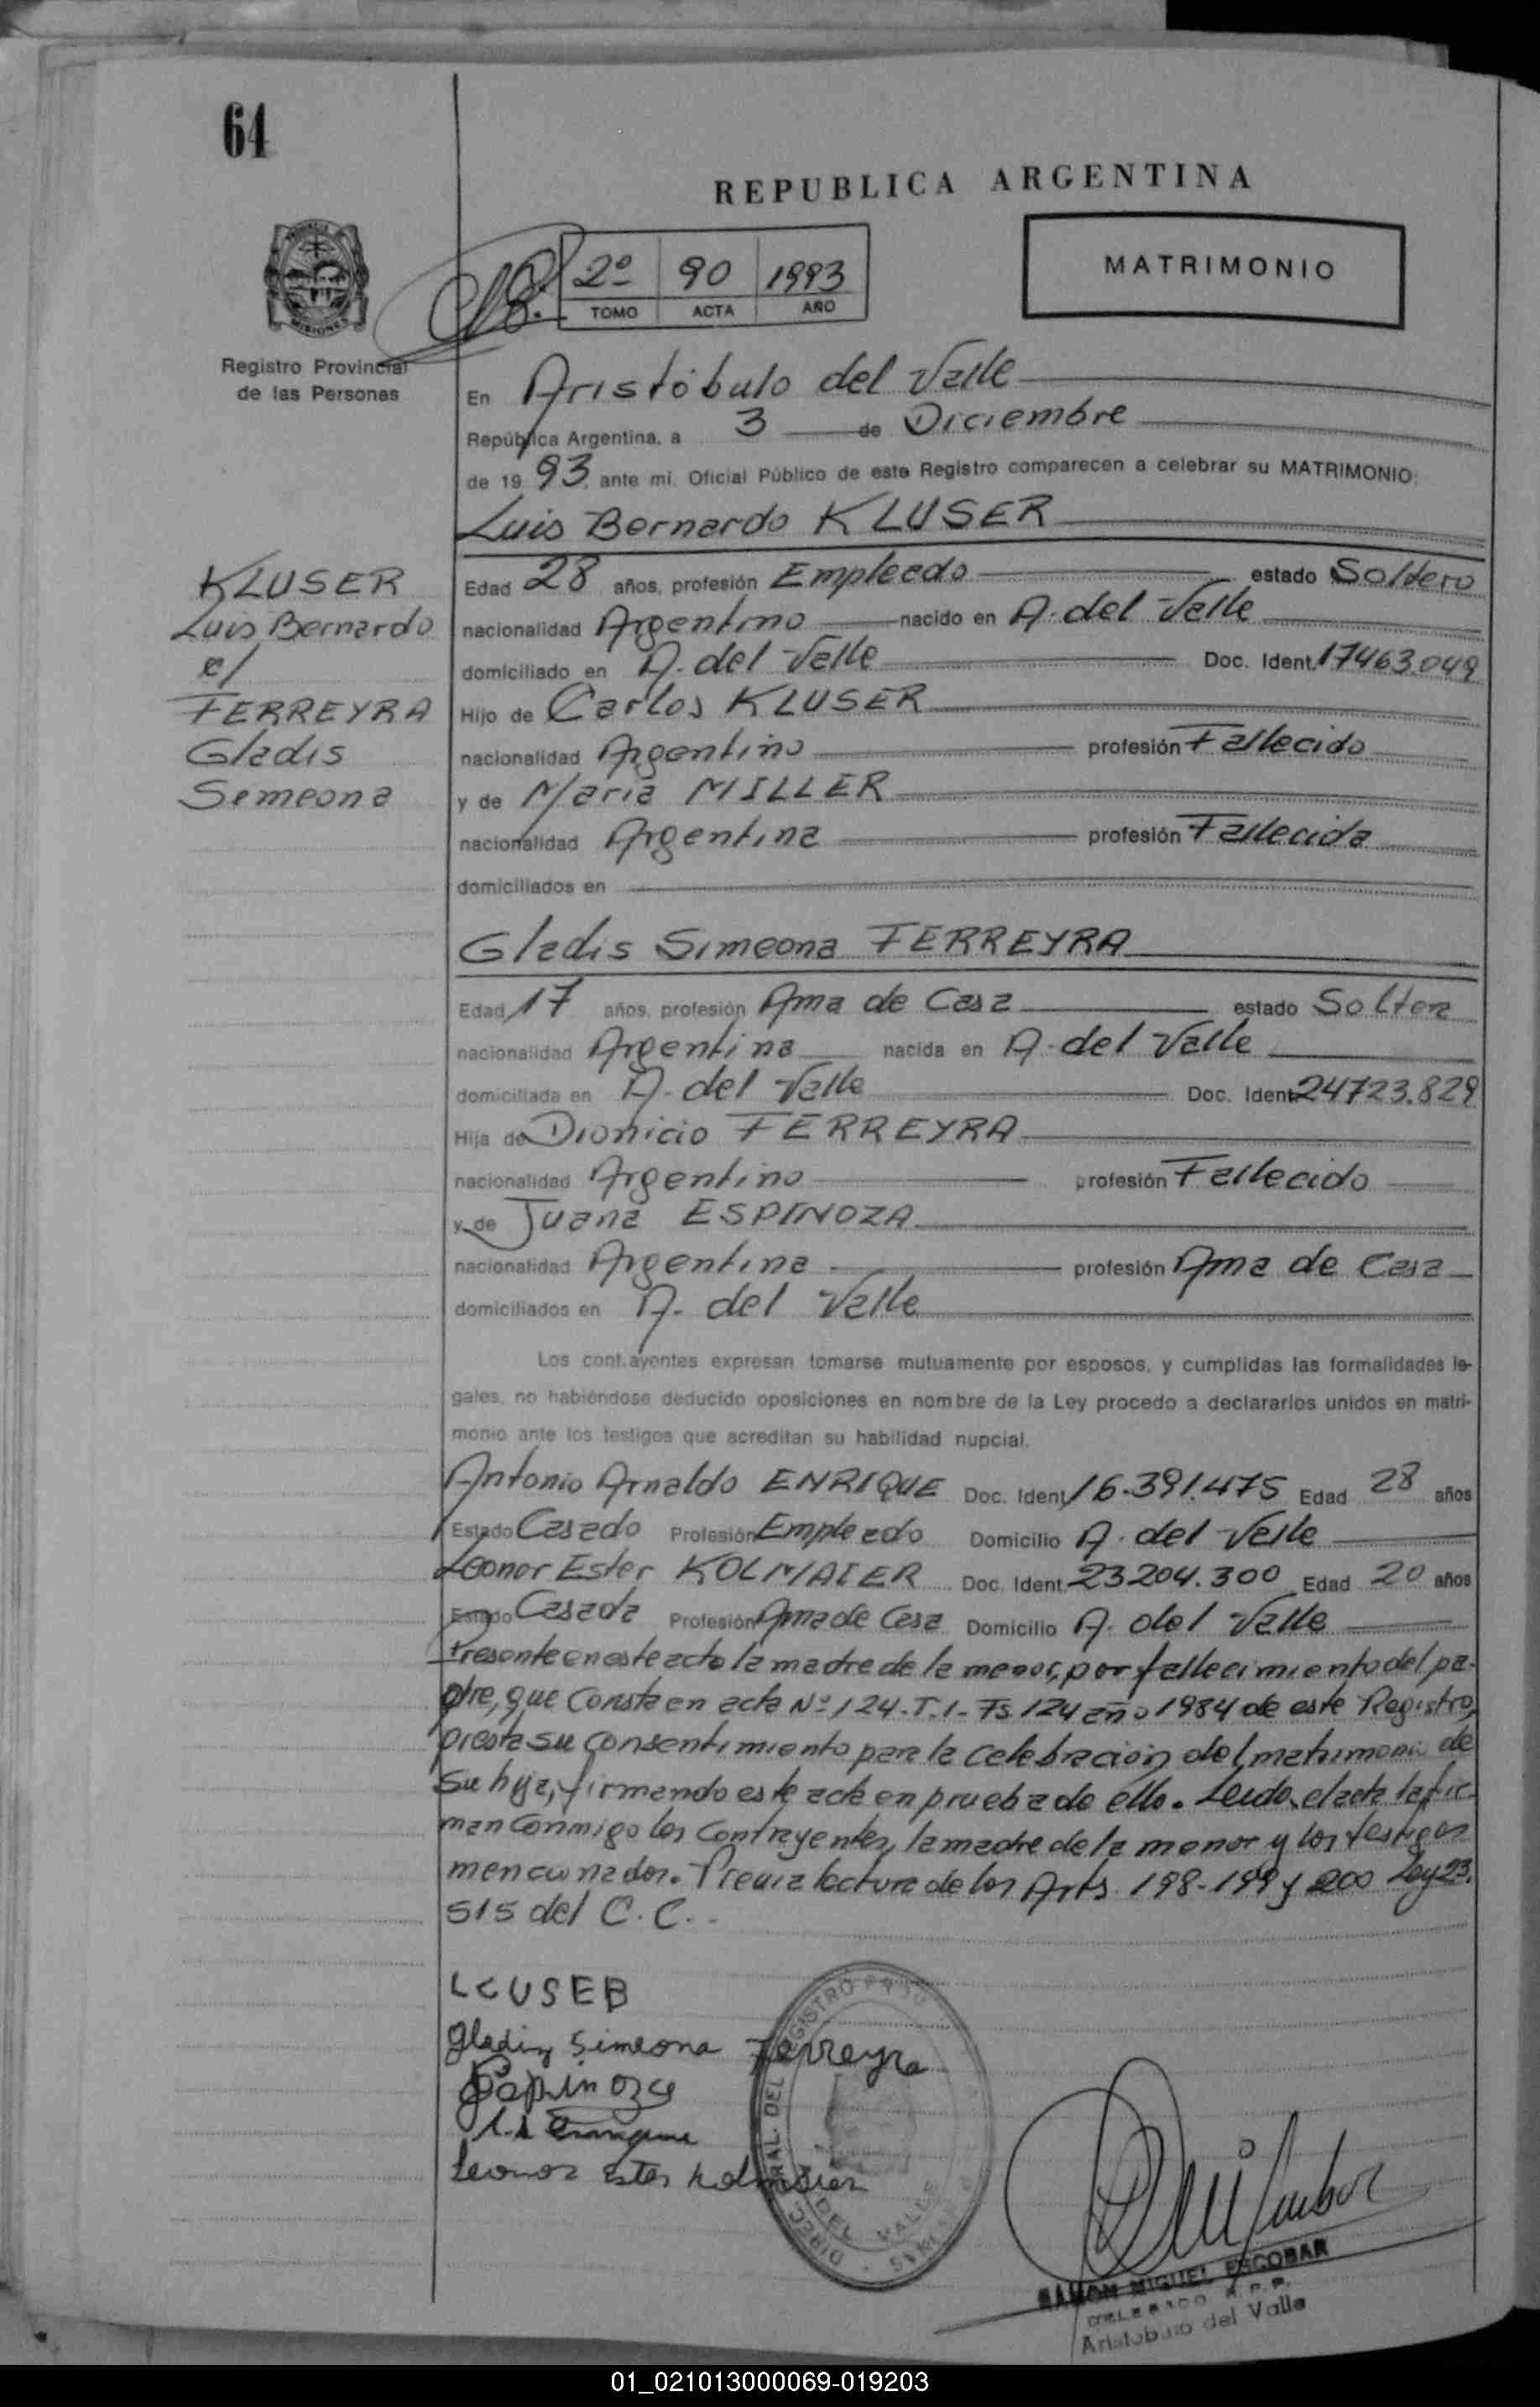 64
REPUBLICA ARGENTINA
2º 90 1993
TOMO ACTA AÑO
MATRIMONIO
MISIONES
Registro Provincial
de las Personas
En Aristóbulo del Valle
República Argentina, a 3 de Diciembre
de 1993, ante mi, Oficial Público de este Registro comparecen a celebrar su MATRIMONIO:
Luis Bernardo KLUSER
KLUSER
Luis Bernardo
c/
FERREYRA
Gladis
Semeona
Edad 28 años, profesión Empleado estado Soltero
nacionalidad Argentino nacido en A. del Valle
domiciliado en A. del Valle Doc. Ident. 17463.049
Hijo de Carlos KLUSER
nacionalidad Argentino profesión Fallecido
y de Maria MILLER
nacionalidad Argentina profesión Fallecida
domiciliados en
Gladis Simeona FERREYRA
Edad 17 años, profesión Ama de Casa estado Soltera
nacionalidad Argentina nacida en A. del Valle
domiciliada en A. del Valle Doc. Ident. 24723.829
Hija de Dionicio FERREYRA
nacionalidad Argentino profesión Fallecido
y de Juana ESPINOZA
nacionalidad Argentina profesión Ama de Casa
domiciliados en A. del Valle
Los contrayentes expresan tomarse mutuamente por esposos, y cumplidas las formalidades le-
gales, no habiéndose deducido oposiciones en nombre de la Ley procedo a declararlos unidos en matri-
monio ante los testigos que acreditan su habilidad nupcial.
Antonio Arnaldo ENRIQUE Doc. Ident. 16.391.475 Edad 28 años
Estado Casado Profesión Empleado Domicilio A. del Valle
Leonor Ester KOLMAIER Doc. Ident. 23204.300 Edad 20 años
Estado Casada Profesión Ama de Casa Domicilio A. del Valle
Presente en este acto la madre de la menor, por fallecimiento del pa-
dre, que consta en acta Nº 124-T.1-Fs. 124 año 1984 de este Registro,
presta su consentimiento para la celebración del matrimonio de
su hija, firmando este acta en prueba de ello. Leida el acta la fir-
man conmigo los contrayentes, la madre de la menor y los testigos
mencionados. Previa lectura de los Arts. 198-199 y 200 Ley 23.
515 del C.C..
LCUSEB
Gladiz Simeona Ferreyra
Espinoza
Leonor Ester Kolmaier
DIREC RAL. DEL REGISTRO PROV
DEL VALLE
RAMON MIGUEL ESCOBAR
DELEGADO R.P.P.
Aristobulo del Valle
01_021013000069-019203